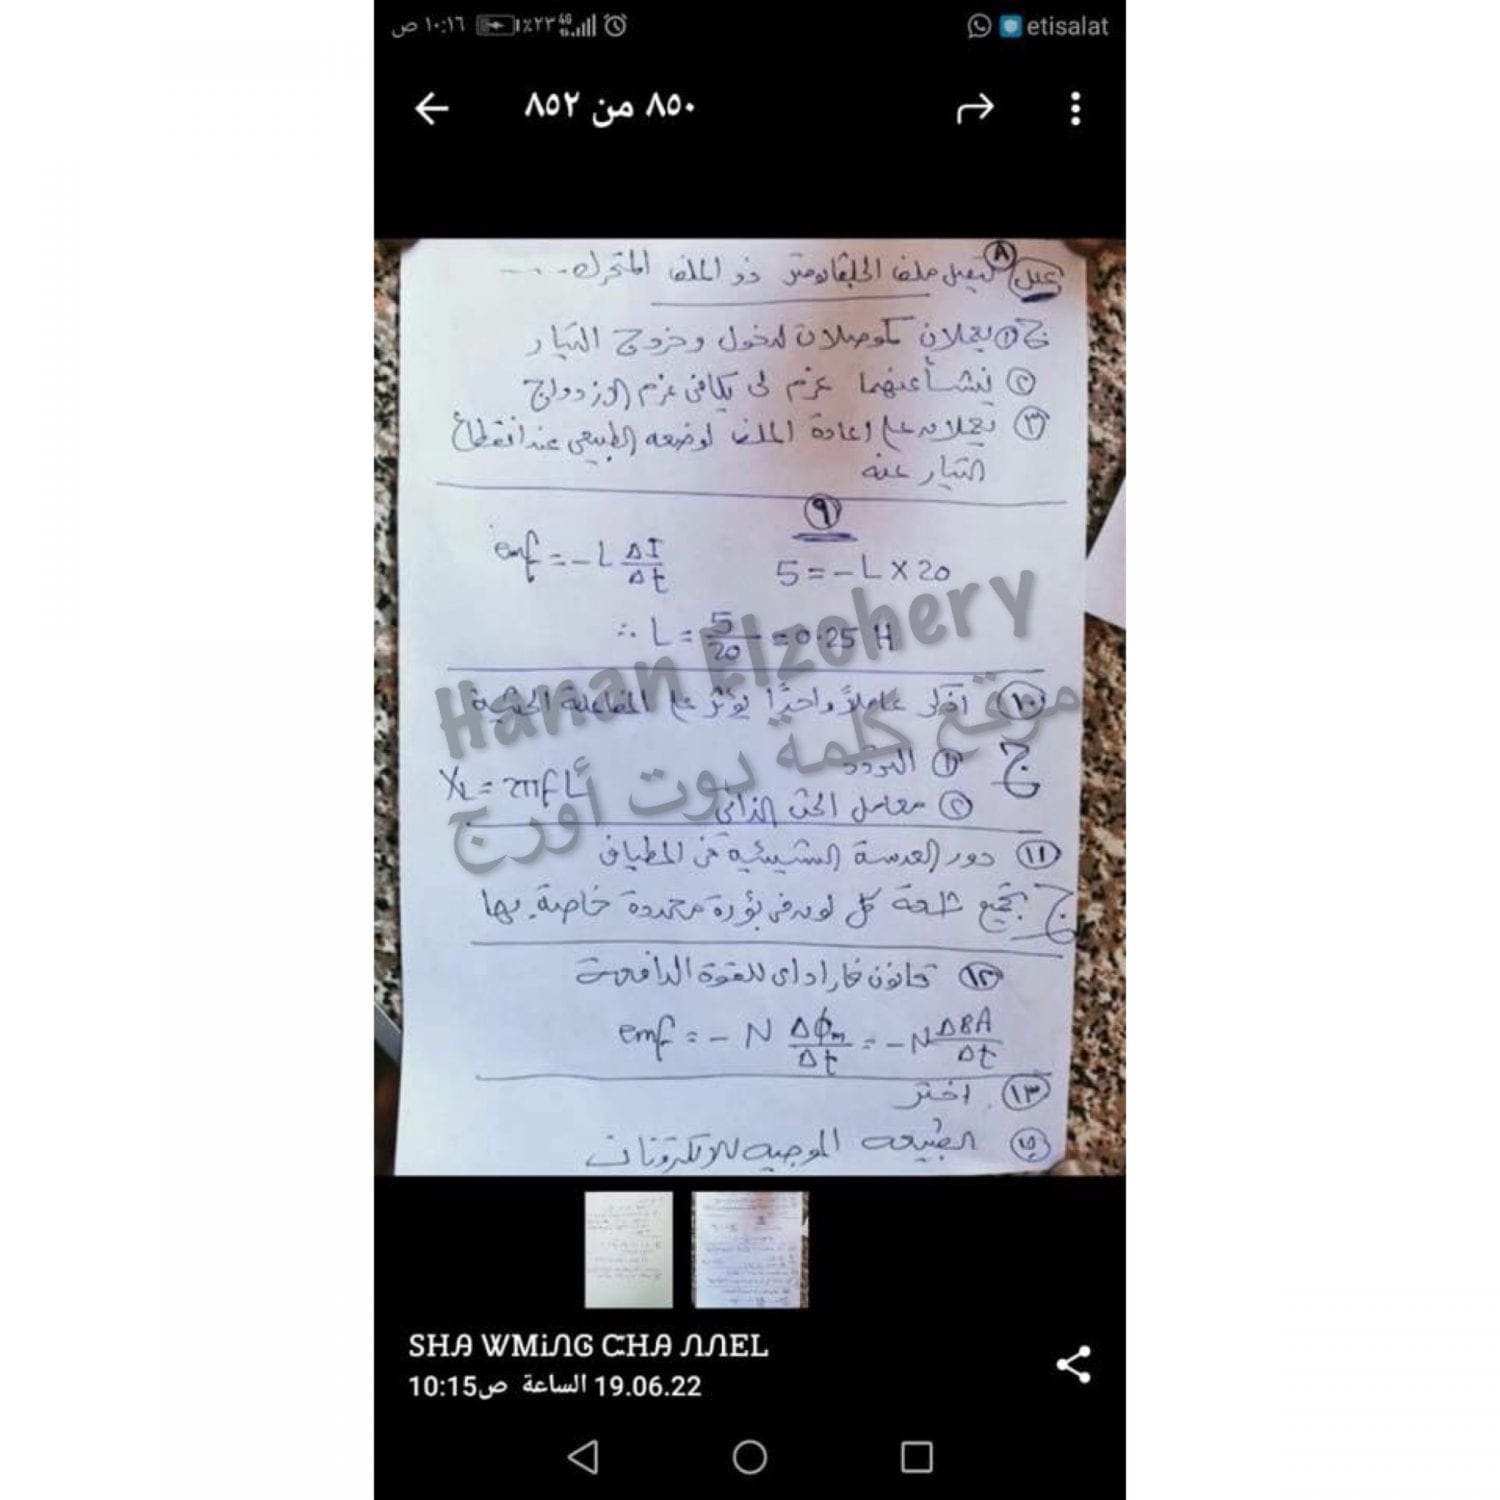 ١٠:١٦ ص ٢٣٪ 4G etisalat
٨٥٠ من ٨٥٢
علل ٨ تتصل ملف الجلفانومتر ذو الملف المتحرك....
ج ١ يعملان كموصلات لدخول وخروج التيار
٢ ينشأ عنهما عزم لى يكافئ عزم الازدواج
٣ تعملان على إعادة الملف لوضعه الطبيعى عند انقطاع
التيار عنه
٩
emf = - L ΔI/Δt 5 = - L X 20
∴ L = 5/20 = 0.25 H
١٠ اذكر عاملاً واحداً يؤثر على المفاعلة الحثية
ج ١ التردد
XL = 2πfL
٢ معامل الحث الذاتى
١١ دور العدسة الشيئية فى المطياف
ج تجميع أشعة كل لون فى بؤرة محددة خاصة بها
١٢ قانون فاراداى للقوة الدافعة
emf = - N Δφm/Δt = - N ΔBA/Δt
١٣ اختر
١٥ الطبيعه الموجيه للالكترونات
Hanan Elzohery
موقع كلمة دوت أورج
SHA WMiNG CHA NNEL
19.06.22 الساعة 10:15ص